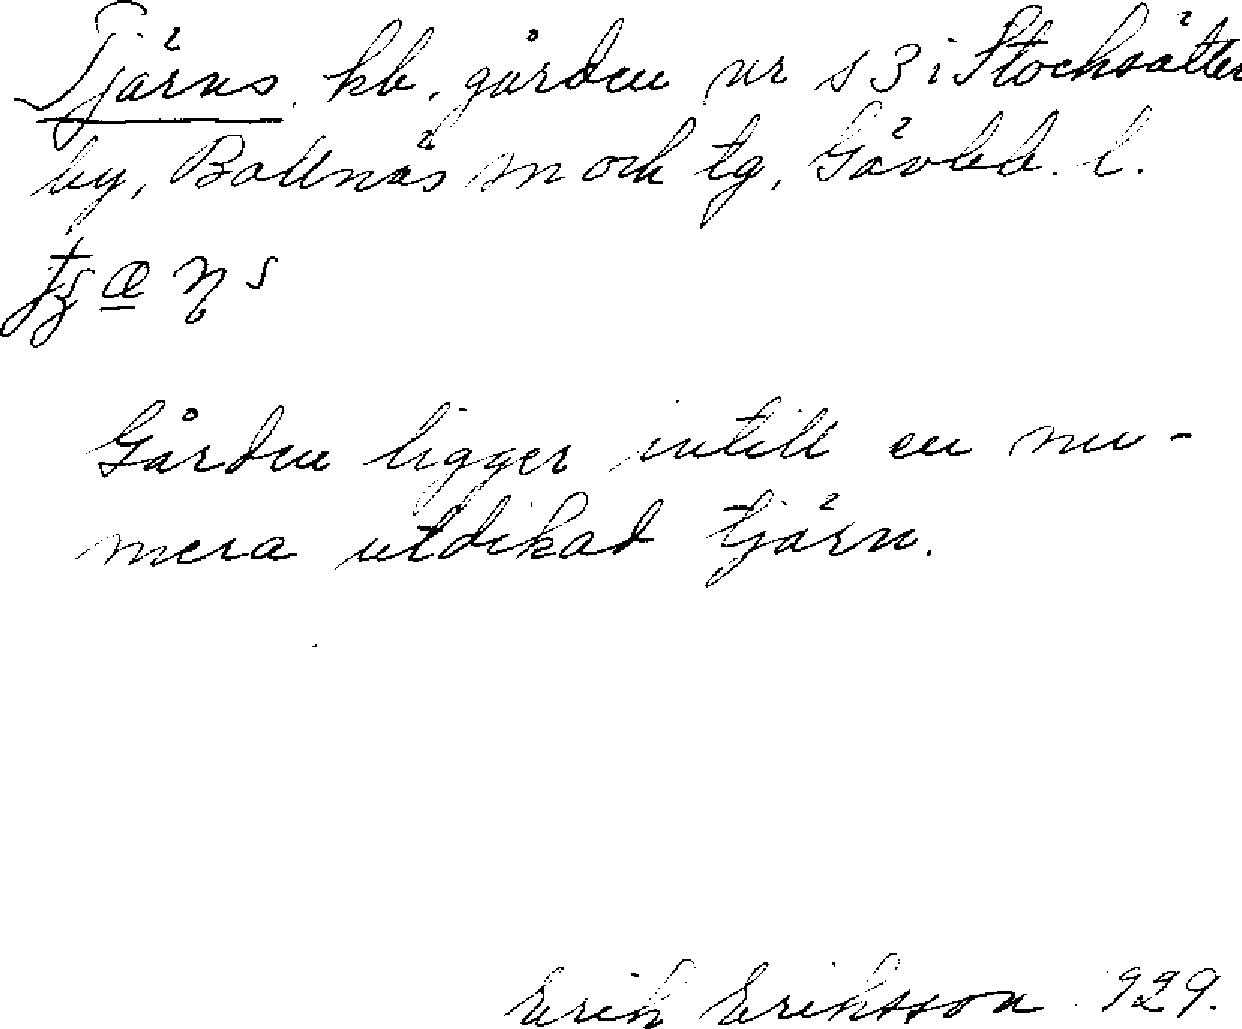 Tjärns, kb. gården nr s 3 i Stocksätter
by, Bollnäs sn och tg, Gävleb. l.
Gården ligger intill en nu-
mera utdikad tjärn.
Erik Eriksson 1929.